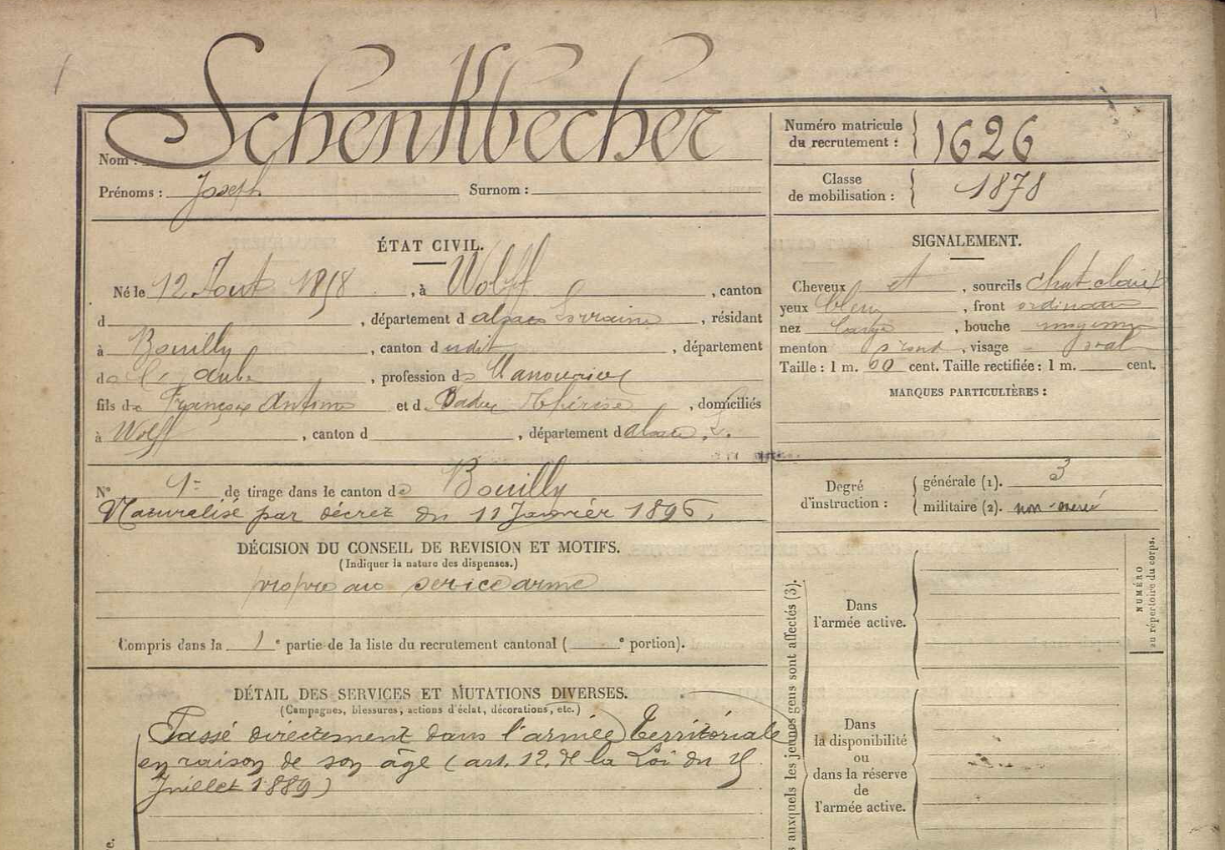 Schenkbecher
Nom :
Prénoms : Joseph Surnom :
Numéro matricule
du recrutement : 1626
Classe
de mobilisation : 1878
ÉTAT CIVIL.
Né le 12 Aout 1858, à Wolff, canton
d , département d alsace Lorraine, résidant
à Bouilly, canton dudit, département
de l'aube, profession de Manouvrier
fils de François Antoine et d Thérèse, domiciliés
à Wolff, canton d , département d alsace L.
N° 1 de tirage dans le canton de Bouilly
Naturalisé par décret du 11 Janvier 1896.
DÉCISION DU CONSEIL DE REVISION ET MOTIFS.
(Indiquer la nature des dispenses.)
propre au service armé
Compris dans la 1e partie de la liste du recrutement cantonal ( e portion).
DÉTAIL DES SERVICES ET MUTATIONS DIVERSES.
(Campagnes, blessures, actions d'éclat, décorations, etc.)
Passé directement dans l'armée Territoriale
en raison de son âge (art. 12. de la Loi du 15
Juillet 1889)
SIGNALEMENT.
Cheveux et, sourcils chat. clairs
yeux bleus, front ordinaire
nez large, bouche moyenne
menton rond, visage oval
Taille : 1 m. 60 cent. Taille rectifiée : 1 m. cent.
MARQUES PARTICULIÈRES :
Degré
d'instruction : générale (1). 3
militaire (2). non exercé
auxquels les jeunes gens sont affectés (3).
Dans
l'armée active.
NUMÉRO
au répertoire du corps.
Dans
la disponibilité
ou
dans la réserve
de
l'armée active.